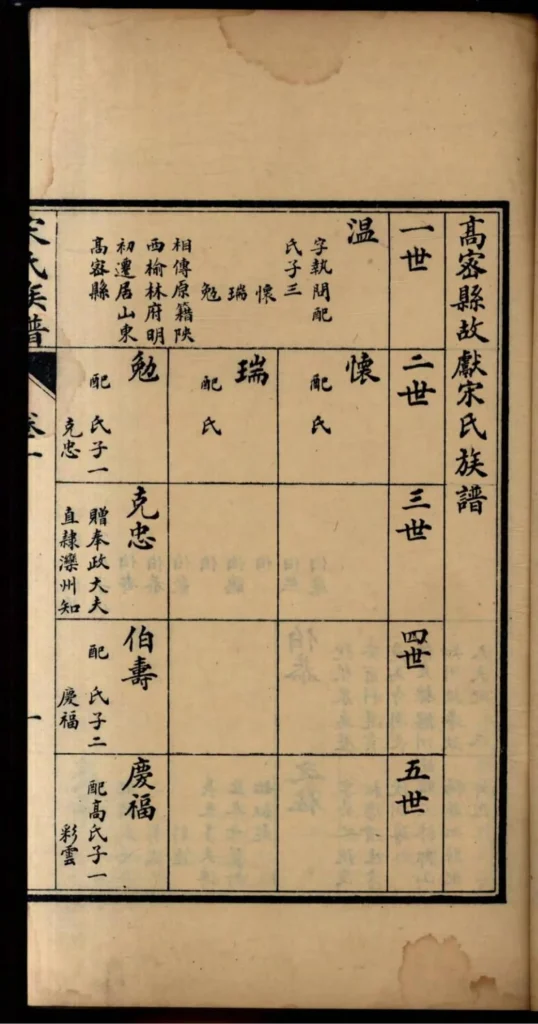 高密縣故獻宋氏族譜
一世
温
字執閏配
氏子三
懷
瑞
勉
相傳原籍陝
西榆林府明
初遷居山東
高密縣
二世
懷
配 氏
瑞
配 氏
勉
配 氏子一
克忠
三世
克忠
贈奉政大夫
直隸灤州知
四世
伯壽
配 氏子二
慶福
五世
慶福
配高氏子一
彩雲
宋氏族譜
卷一
一